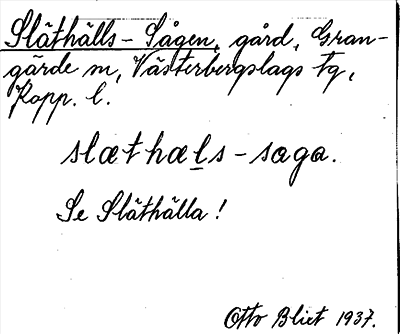 Släthälls-Sågen, gård, Gran-
gärde sn, Västerbergslags tg,
Kopp. l.
slæthæls-saga.
Se Släthälla!
Otto Blixt 1937.